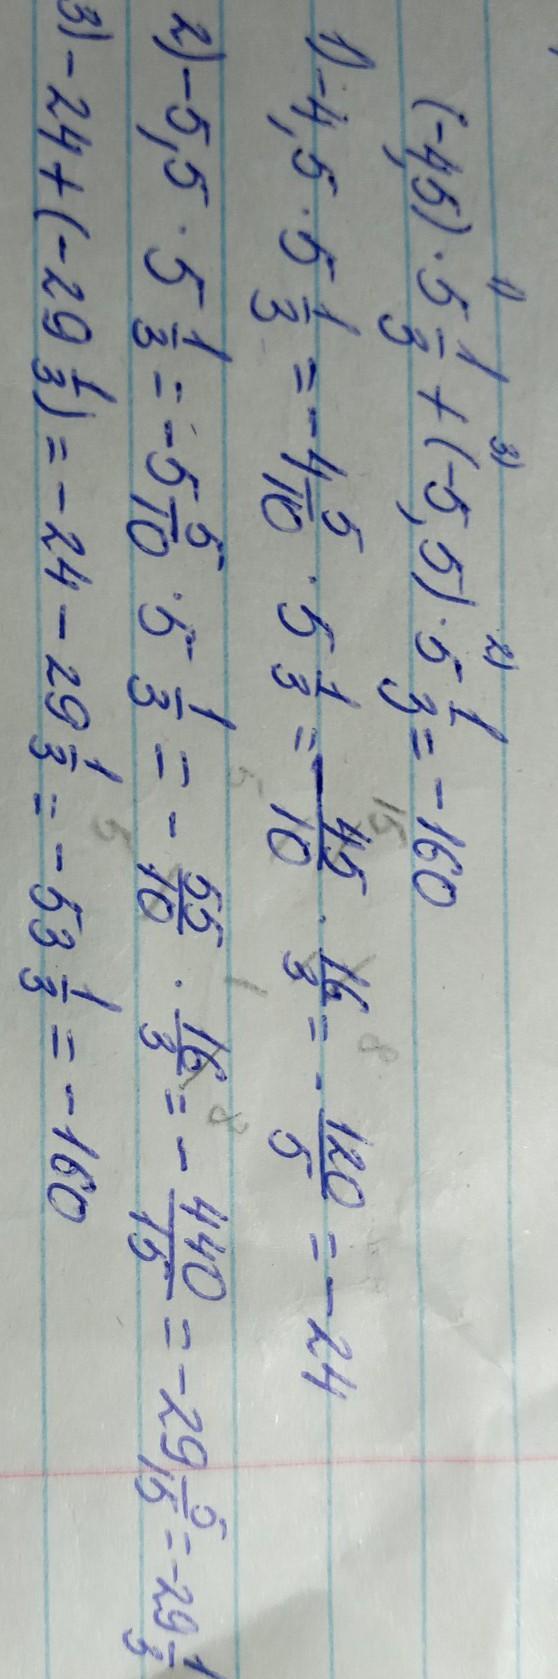 1) 3) 2)
(-4,5) · 5 1/3 + (-5,5) · 5 1/3 = -160
15 8
1) -4,5 · 5 1/3 = -4 5/10 · 5 1/3 = -45/10 · 16/3 = -120/5 = -24
5 1 8
2) -5,5 · 5 1/3 = -5 5/10 · 5 1/3 = -55/10 · 16/3 = -440/15 = -29 5/15 = -29 1/3
5
3) -24 + (-29 1/3) = -24 - 29 1/3 = -53 1/3 = -160